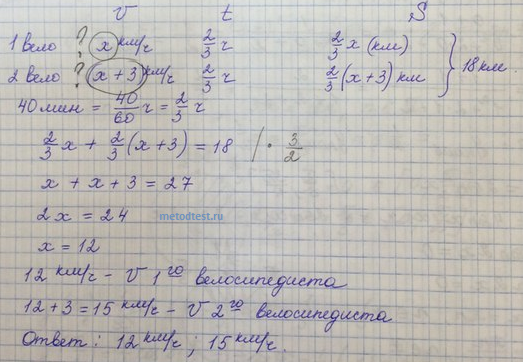 V t S
1 вело ? x км/ч 2/3 ч 2/3 x (км)
2 вело ? x + 3 км/ч 2/3 ч 2/3 (x + 3) км } 18 км.
40 мин = 40/60 ч = 2/3 ч
2/3 x + 2/3 (x + 3) = 18 / · 3/2
x + x + 3 = 27
2x = 24 metodtest.ru
x = 12
12 км/ч - V 1го велосипедиста
12 + 3 = 15 км/ч - V 2го велосипедиста
Ответ: 12 км/ч; 15 км/ч.